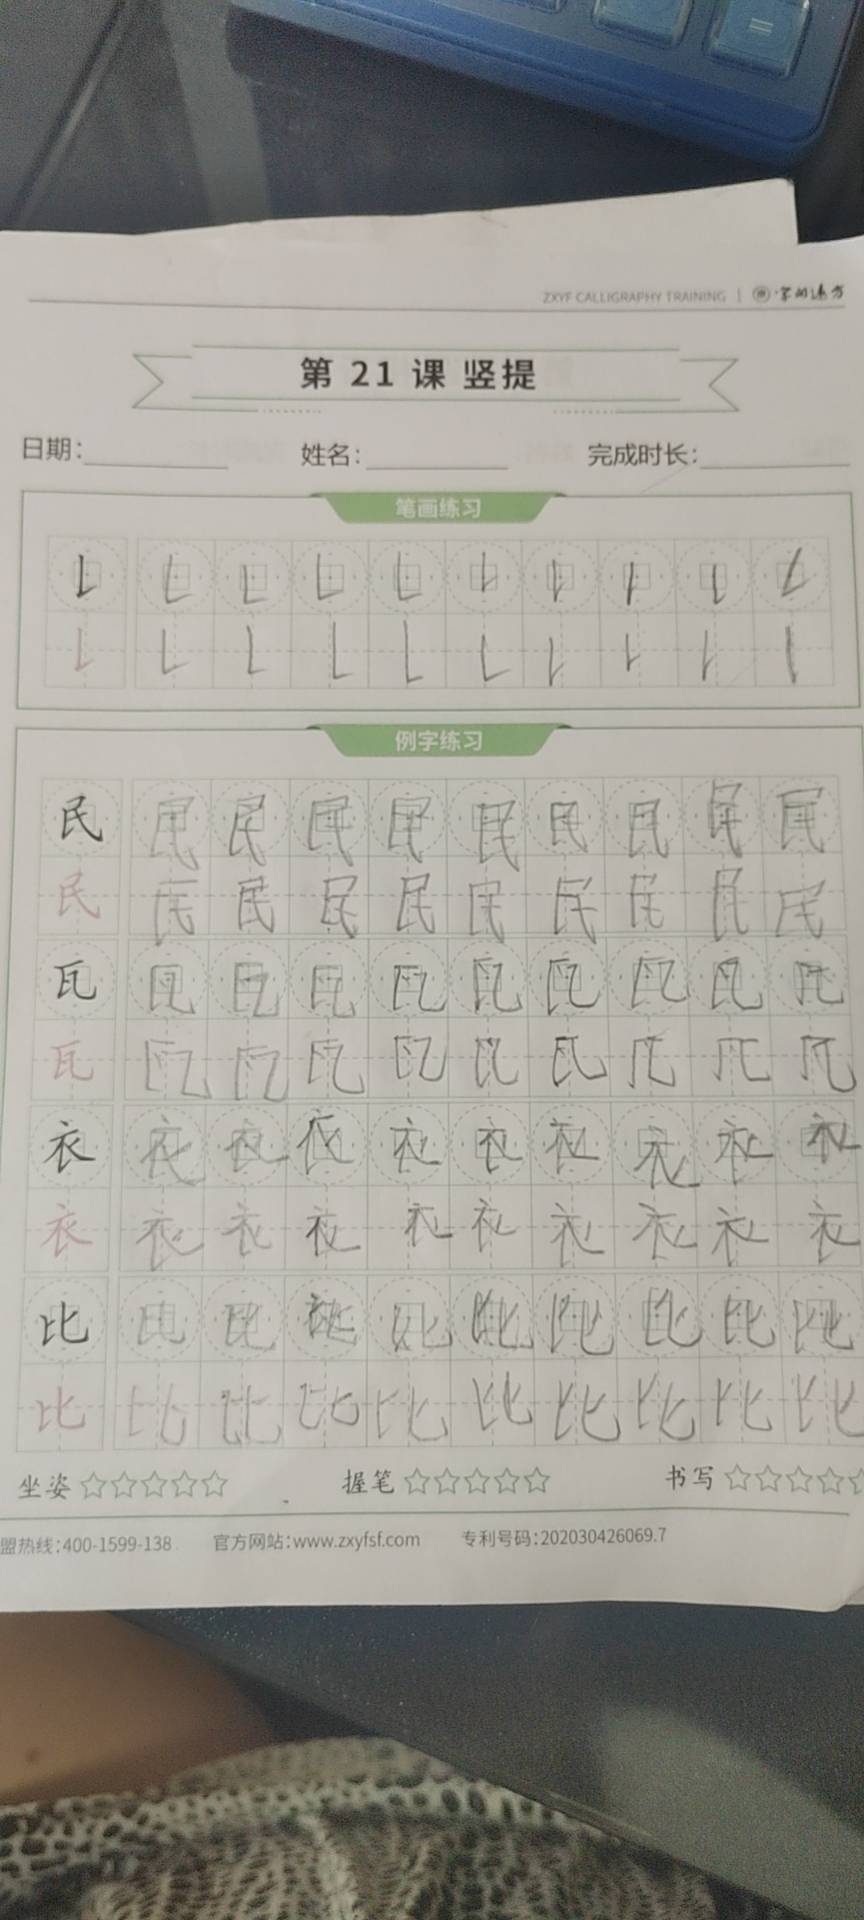 ZXYF CALLIGRAPHY TRAINING
第 21 课 竖提
日期: 姓名: 完成时长:
笔画练习
例字练习
民 民 民 民 民 民 民 民 民 民
民 民 民 民 民 民 民 民 民 民
瓦 瓦 瓦 瓦 瓦 瓦 瓦 瓦 瓦 瓦
瓦 瓦 瓦 瓦 瓦 瓦 瓦 瓦 瓦 瓦
衣 衣 衣 衣 衣 衣 衣 衣 衣 衣
衣 衣 衣 衣 衣 衣 衣 衣 衣 衣
比 比 比 比 比 比 比 比 比
比 比 比 比 比 比 比 比 比 比
坐姿 ☆☆☆☆☆ 握笔 ☆☆☆☆☆ 书写 ☆☆☆☆☆
盟热线:400-1599-138 官方网站:www.zxyfsf.com 专利号码:202030426069.7